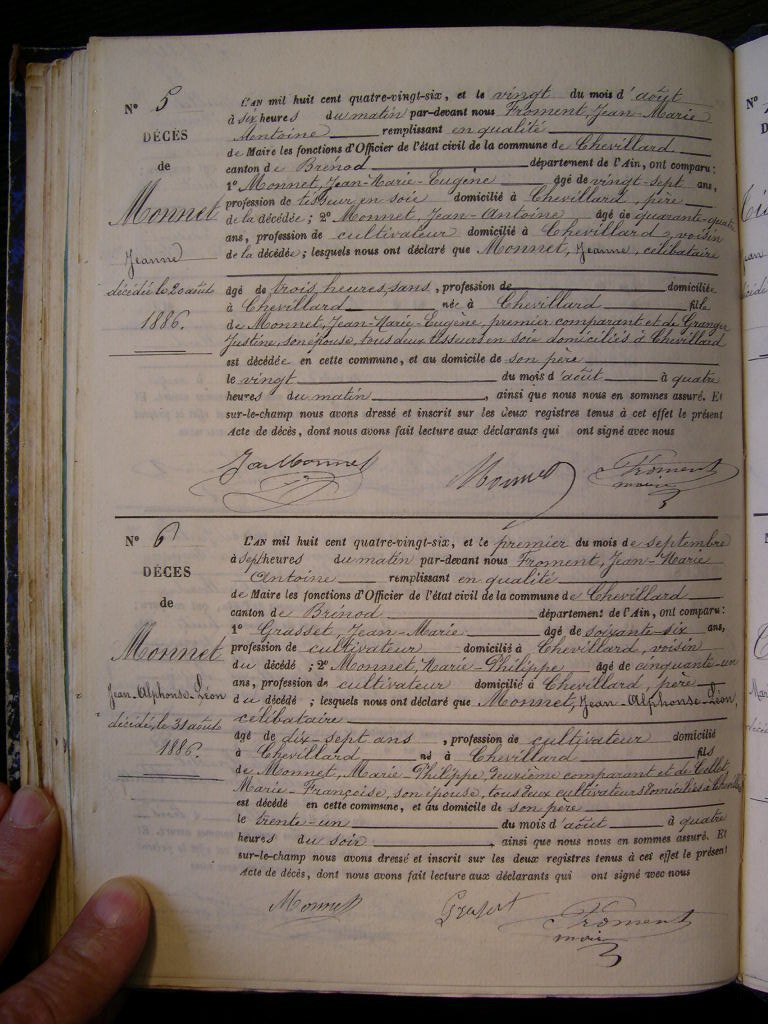 N° 5
DÉCÈS
de
Monnet
Jeanne
décédée le 20 août
1886.
L'AN mil huit cent quatre-vingt-six, et le vingt du mois d'août
à six heures du matin par-devant nous Froment, Jean-Marie
Antoine remplissant en qualité
de Maire les fonctions d'Officier de l'état civil de la commune de Chevillard
canton de Brénod département de l'Ain, ont comparu:
1° Monnet, Jean-Marie-Eugène âgé de vingt-sept ans,
profession de tisseur en soie domicilié à Chevillard, père
de la décédée; 2° Monnet, Jean-Antoine âgé de quarante-quatre
ans, profession de cultivateur domicilié à Chevillard, voisin
de la décédée; lesquels nous ont déclaré que Monnet, Jeanne, célibataire
âgé de trois heures, sans, profession de domiciliée
à Chevillard née à Chevillard fille
de Monnet, Jean-Marie-Eugène, premier comparant et de Granger
Justine, son épouse, tous deux tisseurs en soie domiciliés à Chevillard
est décédée en cette commune, et au domicile de son père
le vingt du mois d'août à quatre
heures du matin, ainsi que nous nous en sommes assuré. Et
sur-le-champ nous avons dressé et inscrit sur les deux registres tenus à cet effet le présent
Acte de décès, dont nous avons fait lecture aux déclarants qui ont signé avec nous
JaMonnet Monnet Froment
maire
N° 6
DÉCÈS
de
Monnet
Jean-Alphonse-Léon
décédé, le 31 août
1886.
L'AN mil huit cent quatre-vingt-six, et le premier du mois de septembre
à sept heures du matin par-devant nous Froment, Jean-Marie
Antoine remplissant en qualité
de Maire les fonctions d'Officier de l'état civil de la commune de Chevillard
canton de Brénod département de l'Ain, ont comparu:
1° Grasset, Jean-Marie âgé de soixante-six ans,
profession de cultivateur domicilié à Chevillard, voisin
du décédé; 2° Monnet, Marie-Philippe âgé de cinquante-un
ans, profession de cultivateur domicilié à Chevillard, père
du décédé; lesquels nous ont déclaré que Monnet, Jean-Alphonse-Léon,
célibataire
âgé de dix-sept ans, profession de cultivateur domicilié
à Chevillard né à Chevillard fils
de Monnet, Marie-Philippe, deuxième comparant et de Collet,
Marie-Françoise, son épouse, tous deux cultivateurs domiciliés à Chevillard
est décédé en cette commune, et au domicile de son père
le trente-un du mois d'août à quatre
heures du soir, ainsi que nous nous en sommes assuré. Et
sur-le-champ nous avons dressé et inscrit sur les deux registres tenus à cet effet le présent
Acte de décès, dont nous avons fait lecture aux déclarants qui ont signé avec nous
Monnet Grasset Froment
maire